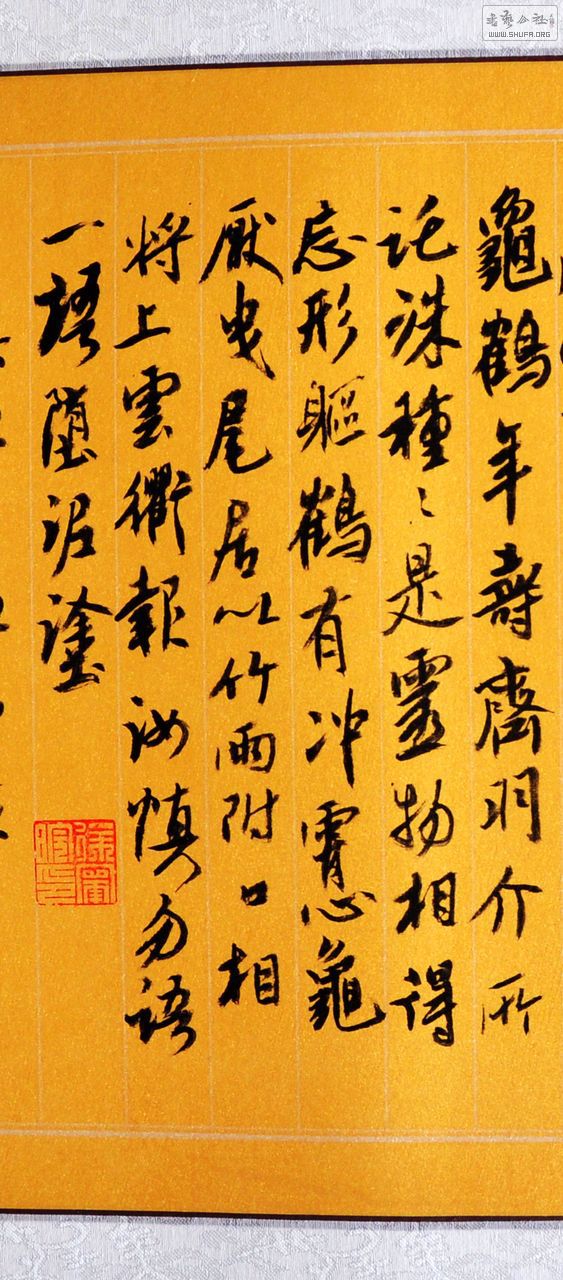 龜鶴年壽齊羽介所
託殊種〻是靈物相得
忘形軀鶴有冲霄心龜
厭曳尾居以竹兩附口相
將上雲衢報汝慎勿語
一語墮泥塗
書藝公社
WWW.SHUFA.ORG